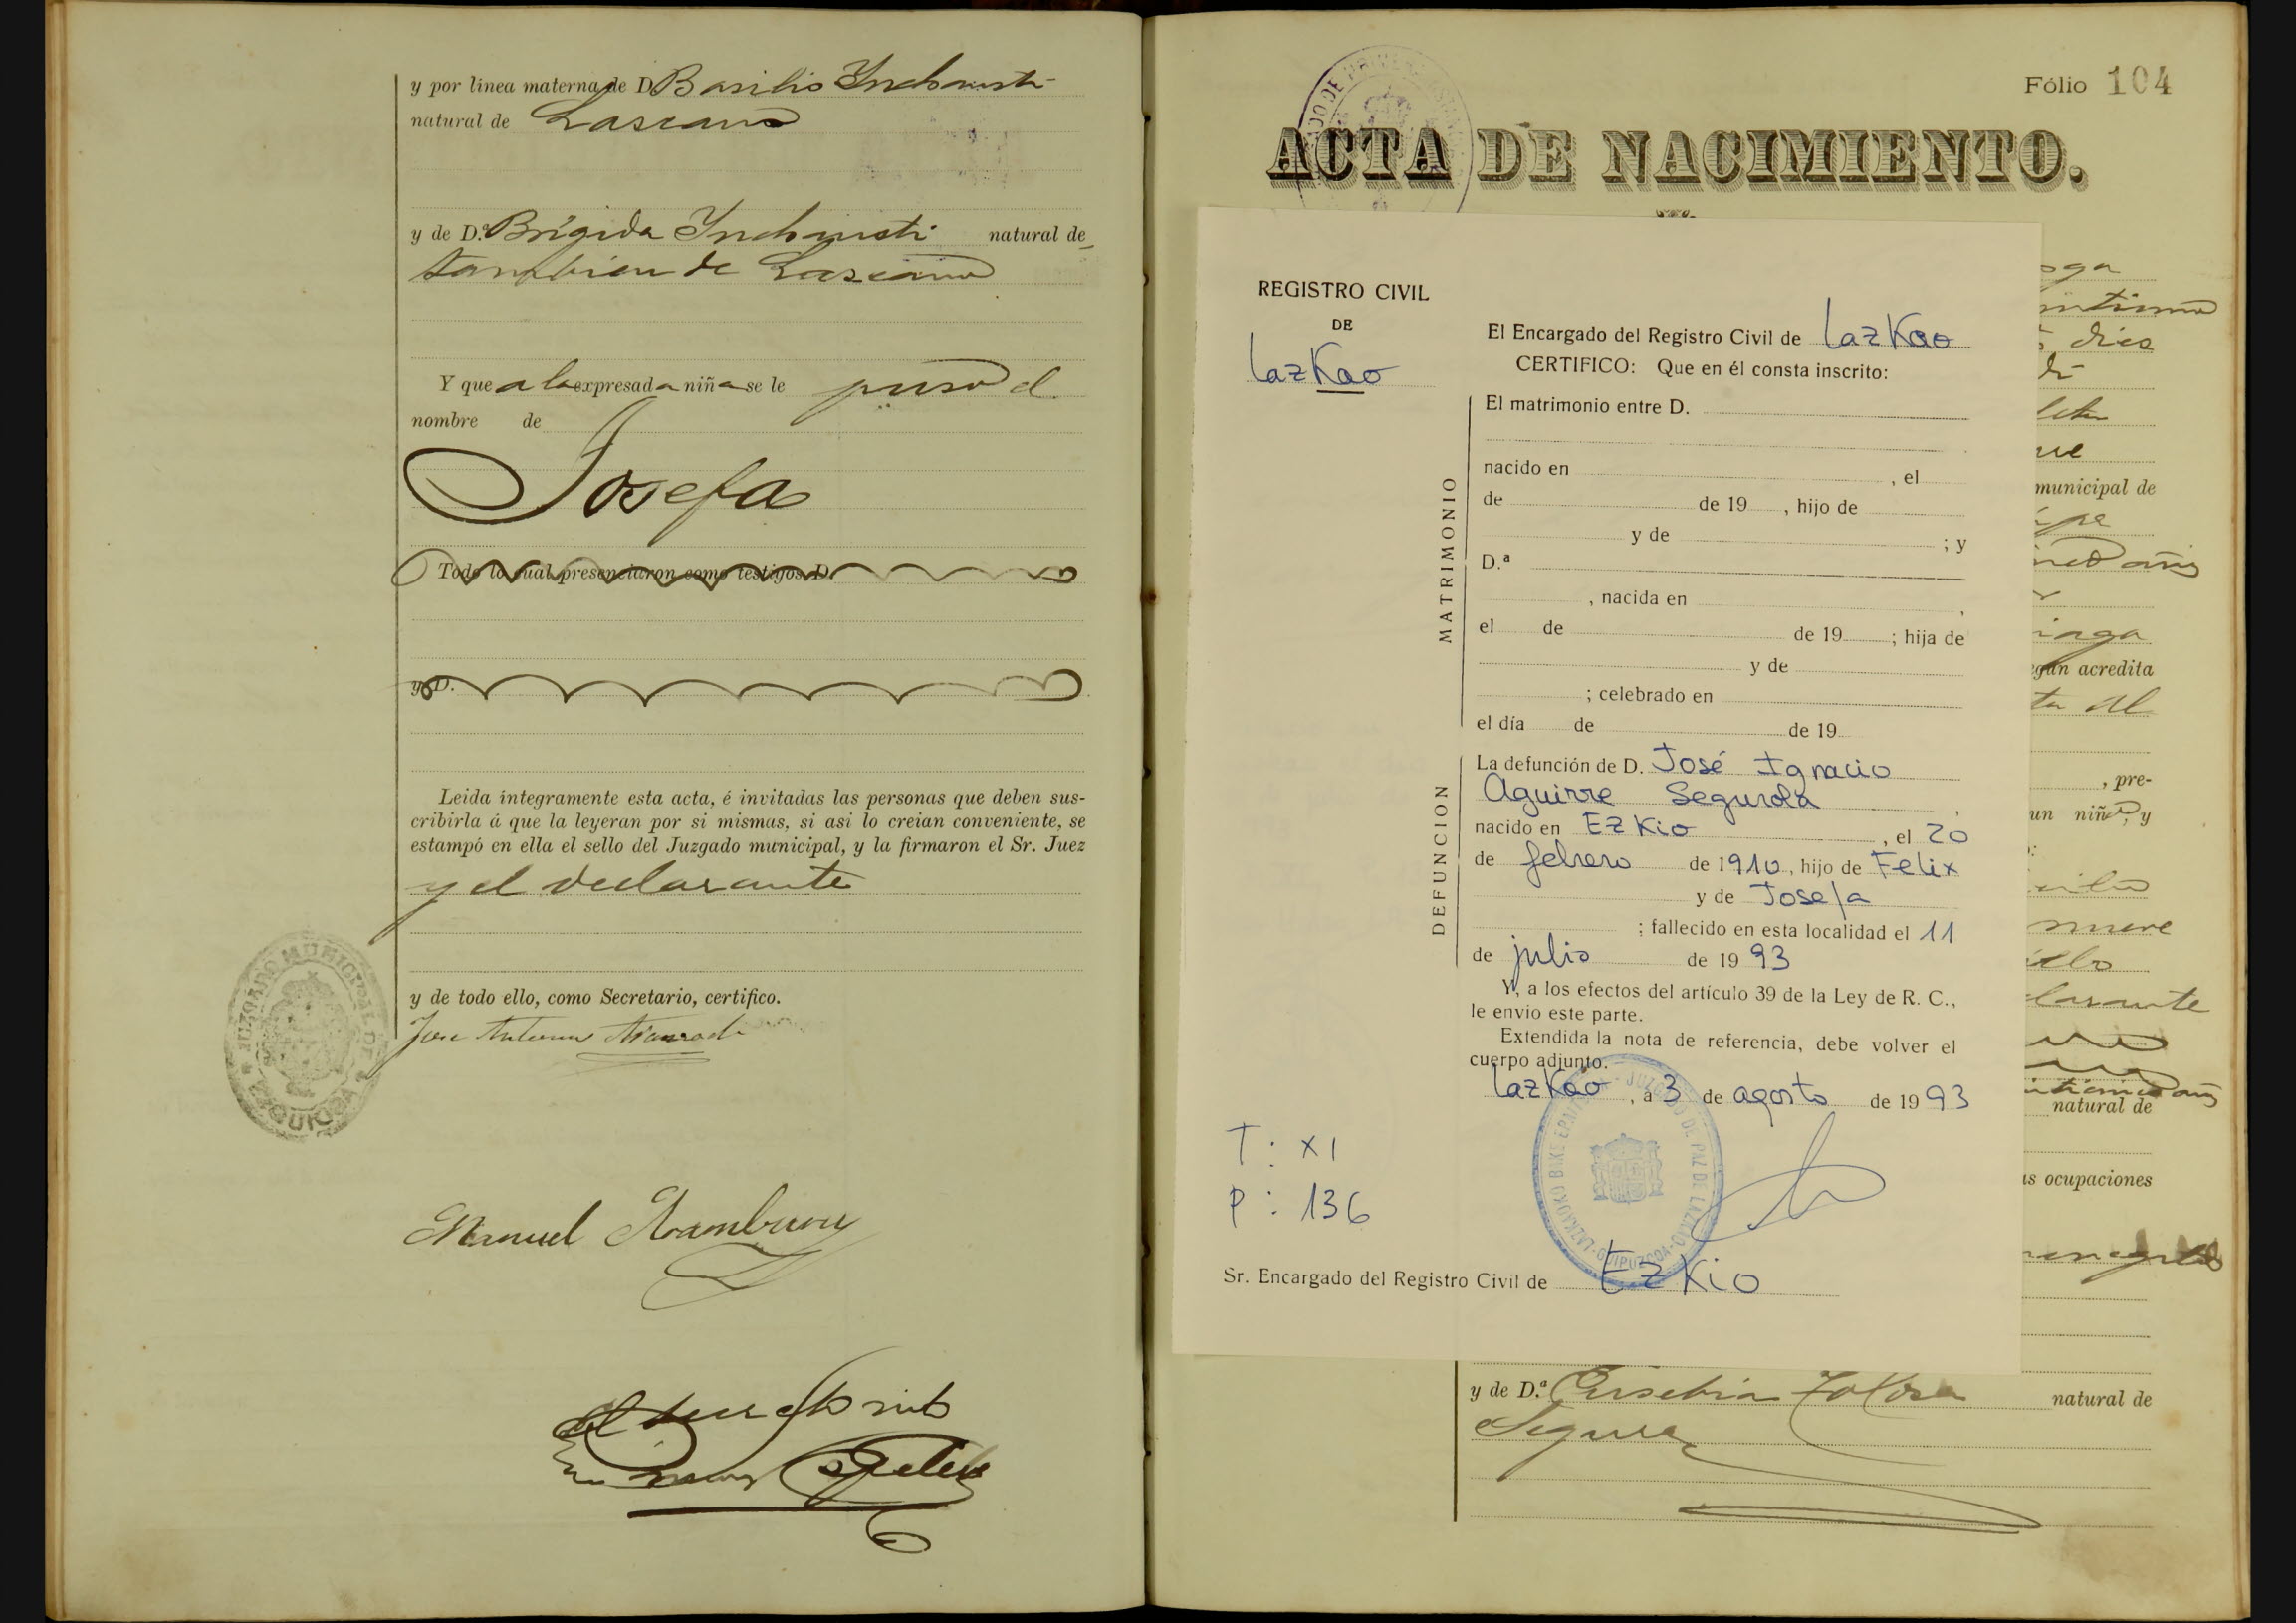 y por línea materna de D. Basilio Inchausti
natural de Lascano
y de D.ª Brígida Inchausti natural de
tambien de Lascano
Y que a la expresada niña se le puso el
nombre de
Josefa
Todo lo cual presenciaron como testigos D.
y D.
Leida íntegramente esta acta, é invitadas las personas que deben sus-
cribirla á que la leyeran por si mismas, si asi lo creian conveniente, se
estampó en ella el sello del Juzgado municipal, y la firmaron el Sr. Juez
y el declarante
y de todo ello, como Secretario, certifico.
Jose Antonio
JUZGADO MUNICIPAL DE EZQUIOGA
Manuel Aramburu
Fólio 104
ACTA DE NACIMIENTO.
REGISTRO CIVIL
DE
Lazkao
El Encargado del Registro Civil de Lazkao
CERTIFICO: Que en él consta inscrito:
MATRIMONIO
El matrimonio entre D.
nacido en , el
de de 19 , hijo de
y de ; y
D.ª
, nacida en ,
el de de 19 ; hija de
y de
; celebrado en
el día de de 19
DEFUNCION
La defunción de D. José Ignacio
Aguirre Segurola ,
nacido en EZKio , el 20
de febrero de 1910, hijo de Felix
y de Josefa
; fallecido en esta localidad el 11
de julio de 1993
Y, a los efectos del artículo 39 de la Ley de R. C.,
le envio este parte.
Extendida la nota de referencia, debe volver el
cuerpo adjunto.
Lazkao, a 3 de agosto de 1993
T : XI
P : 136
LAZKAOKO BAKE EPAITEGIA - JUZGADO DE PAZ DE LAZKAO - GUIPUZCOA
Sr. Encargado del Registro Civil de EZKio
dies
municipal de
años
según acredita
al
, pre-
un niño, y
nueve
declarante
natural de
as ocupaciones
y de D.ª Eusebia Tolosa natural de
Segura